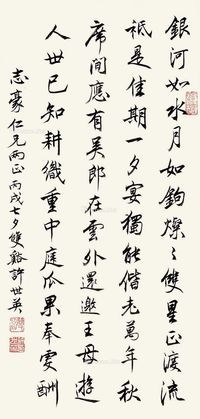 銀河如水月如鉤燦〻雙星正渡流
祇是佳期一夕宴獨能偕老萬年秋
席間應有吳郎在雲外還邀王母遊
人世已知耕織重中庭瓜果奉雯酬
志豪仁兄兩正丙戌七夕雙谿許世英